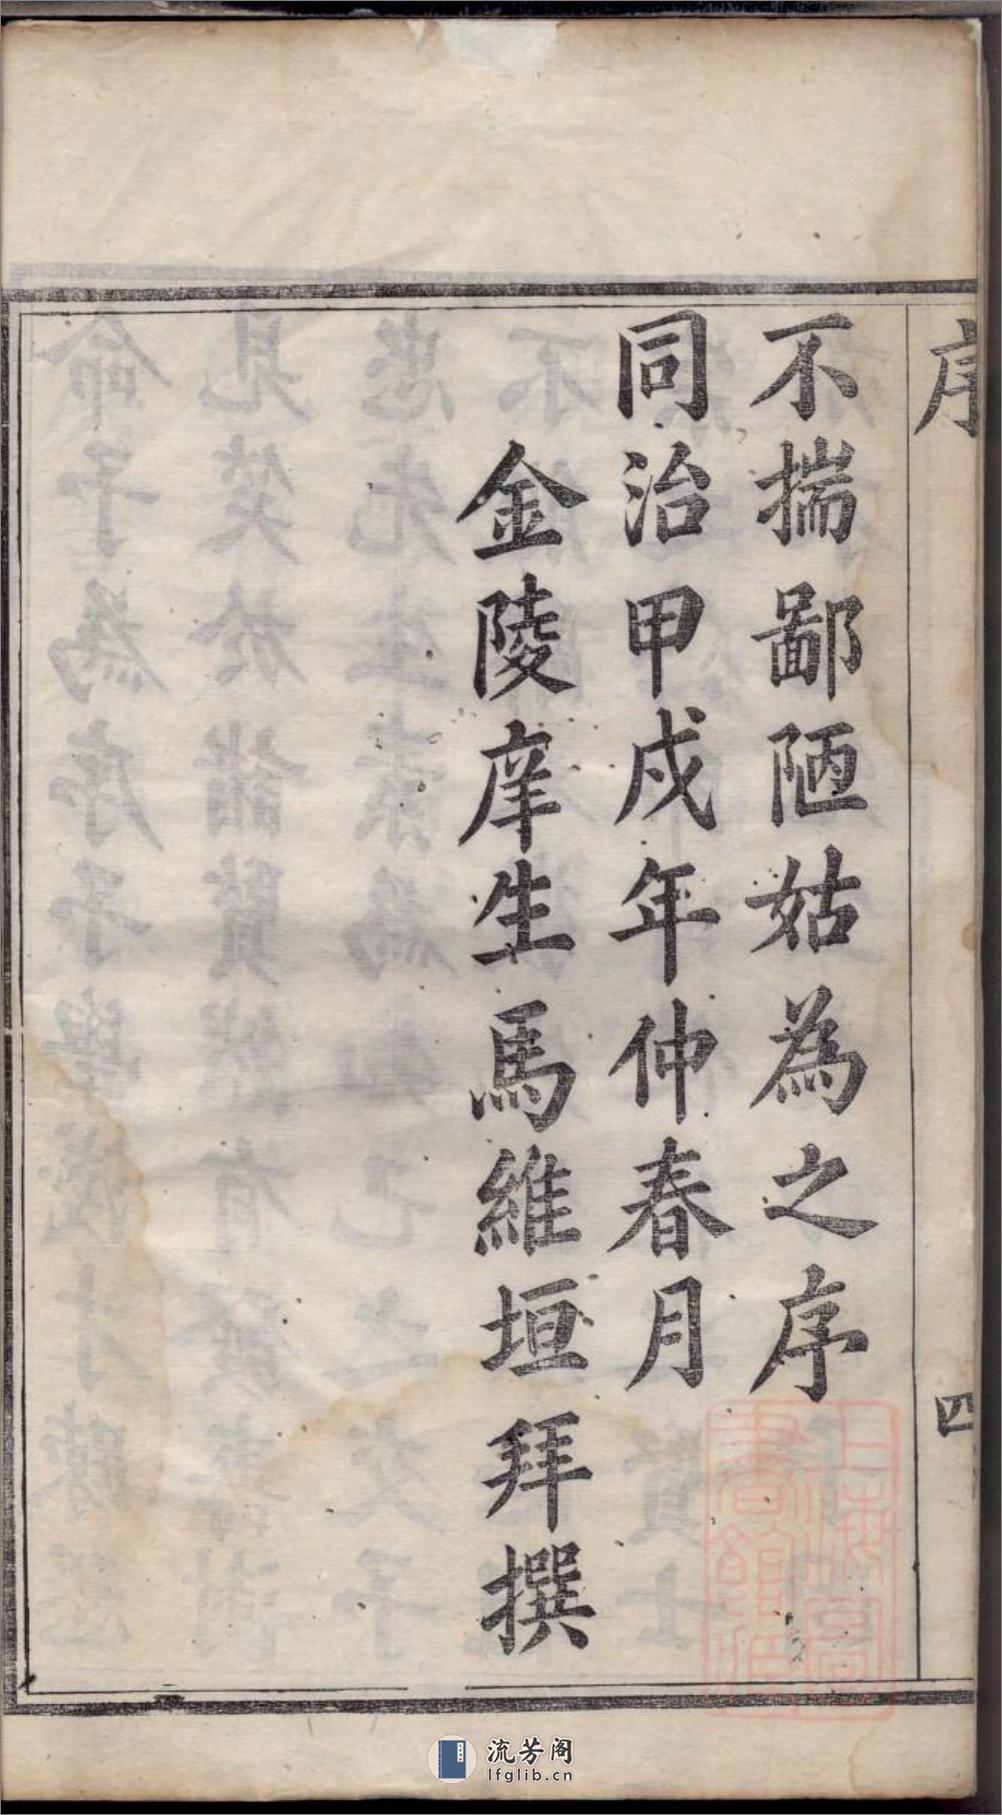 序
四
不揣鄙陋姑為之序
同治甲戌年仲春月
金陵庠生馬維垣拜撰
流芳阁
lfglib.cn